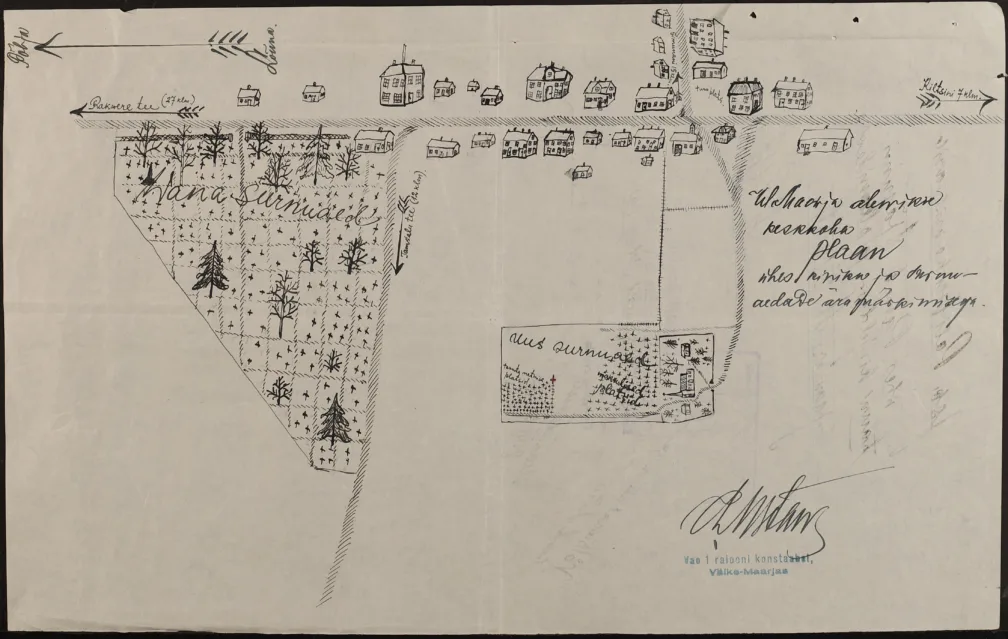 Põhja
Lõuna
Rakvere tee (27 klm)
Kiltsini 7 klm
Tamsalu tee (12 klm)
Vana surnuaed
V. Maarja alevikse
keskkoha
plaan
ühes kiriku ja surnu-
aedade äramärkimisega.
uus surnuaed
Van 1 rajooni konstaabel,
Väike-Maarjas